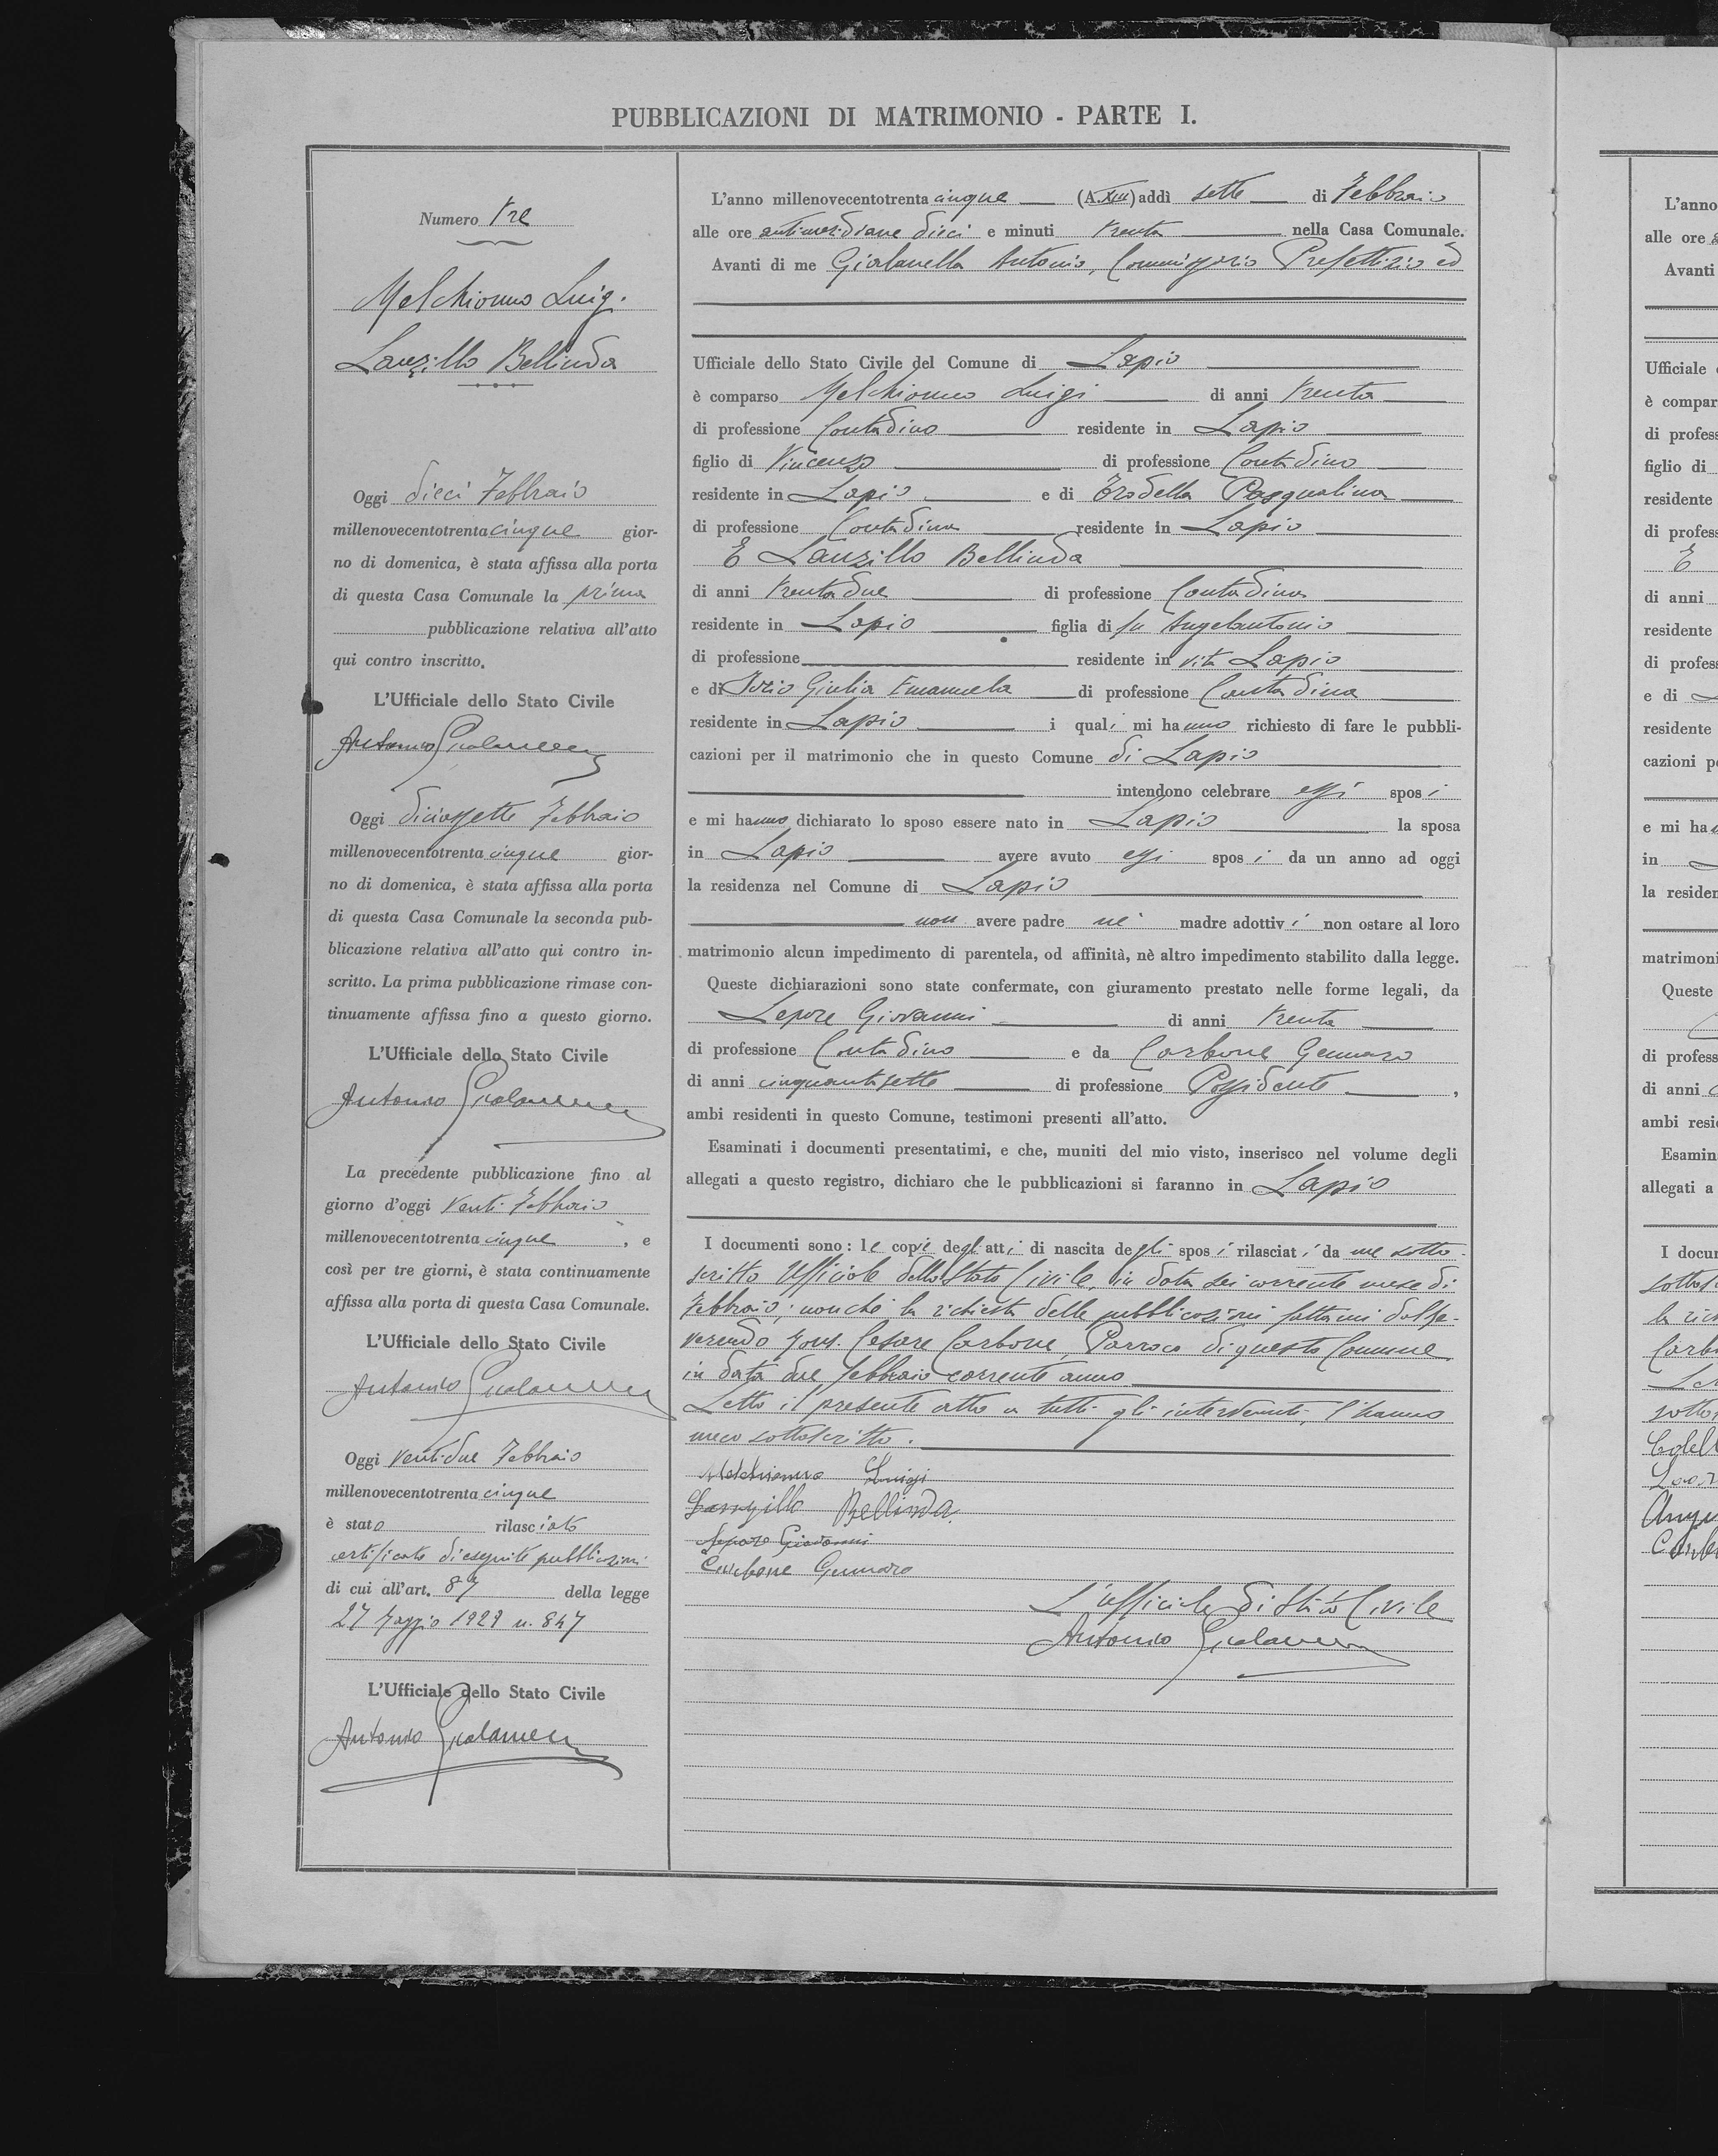 PUBBLICAZIONI DI MATRIMONIO - PARTE I.
Numero tre
Melchionno Luigi
Lanzillo Bellinda
Oggi dieci Febbraio
millenovecentotrenta cinque gior-
no di domenica, è stata affissa alla porta
di questa Casa Comunale la prima
pubblicazione relativa all'atto
qui contro inscritto.
L'Ufficiale dello Stato Civile
Antonio Gialanella
Oggi diciassette Febbraio
millenovecentotrenta cinque gior-
no di domenica, è stata affissa alla porta
di questa Casa Comunale la seconda pub-
blicazione relativa all'atto qui contro in-
scritto. La prima pubblicazione rimase con-
tinuamente affissa fino a questo giorno.
L'Ufficiale dello Stato Civile
Antonio Gialanella
La precedente pubblicazione fino al
giorno d'oggi venti Febbraio
millenovecentotrenta cinque, e
così per tre giorni, è stata continuamente
affissa alla porta di questa Casa Comunale.
L'Ufficiale dello Stato Civile
Antonio Gialanella
Oggi ventidue Febbraio
millenovecentotrenta cinque
è stato rilasciato
certificato di eseguite pubblicazioni
di cui all'art. 87 della legge
27 Maggio 1929 n. 847
L'Ufficiale dello Stato Civile
Antonio Gialanella
L'anno millenovecentotrenta cinque (A. XIII) addì sette di Febbraio
alle ore antimeridiane dieci e minuti trenta nella Casa Comunale.
Avanti di me Gialanella Antonio, Commissario Prefettizio ed
Ufficiale dello Stato Civile del Comune di Lapio
è comparso Melchionno Luigi di anni trenta
di professione Contadino residente in Lapio
figlio di Vincenzo di professione Contadino
residente in Lapio e di Trodella Pasqualina
di professione Contadina residente in Lapio
E Lanzillo Bellinda
di anni trentadue di professione Contadina
residente in Lapio figlia di fu Angelantonio
di professione residente in vita Lapio
e di Iorio Giulia Emanuela di professione Contadina
residente in Lapio i quali mi hanno richiesto di fare le pubbli-
cazioni per il matrimonio che in questo Comune di Lapio
intendono celebrare essi sposi
e mi hanno dichiarato lo sposo essere nato in Lapio la sposa
in Lapio avere avuto essi sposi da un anno ad oggi
la residenza nel Comune di Lapio
non avere padre nè madre adottivi non ostare al loro
matrimonio alcun impedimento di parentela, od affinità, nè altro impedimento stabilito dalla legge.
Queste dichiarazioni sono state confermate, con giuramento prestato nelle forme legali, da
Lepore Giovanni di anni trenta
di professione Contadino e da Carbone Gennaro
di anni cinquantasette di professione Possidente,
ambi residenti in questo Comune, testimoni presenti all'atto.
Esaminati i documenti presentatimi, e che, muniti del mio visto, inserisco nel volume degli
allegati a questo registro, dichiaro che le pubblicazioni si faranno in Lapio
I documenti sono: le copie degli atti di nascita degli sposi rilasciati da me sotto-
scritto Ufficiale dello Stato Civile, in data sei corrente mese di
Febbraio; nonchè la richiesta delle pubblicazioni fattami dal Re-
verendo Mons. Cesare Carbone, Parroco di questo Comune
in data due febbraio corrente anno
Letto il presente atto a tutti gli intervenuti, l'hanno
meco sottoscritto.
Melchionno Luigi
Lanzillo Bellinda
Lepore Giovanni
Carbone Gennaro
L'ufficiale di Stato Civile
Antonio Gialanella
L'anno
alle ore
Avanti
Ufficiale
è compar
di profess
figlio di
residente
di profess
E
di anni
residente
di profess
e di
residente
cazioni p
e mi ha
in
la residen
matrimoni
Queste
di profess
di anni
ambi resi
Esamin
allegati a
I docum